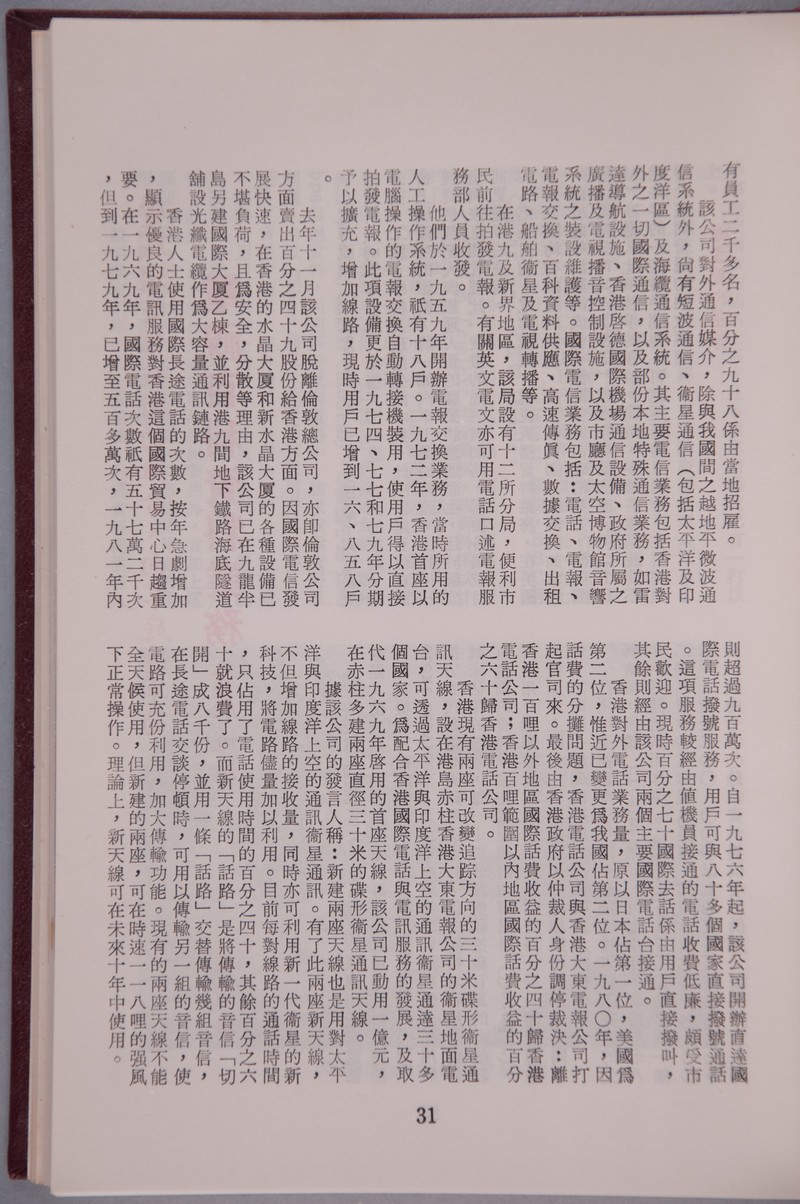 有員工二千多名，百分之九十八係由當地招雇。
該公司對外通信媒介，除與我國間之越地平微波通
信系統外，尙有短波通信、衞星通信（包括太平洋及印
度洋區）及海纜通信系統。其主要電信業務包括香港對
外之一切國際通信，以及部份本地特殊通信業務，如雷
達導航設施、香港啓德國際機場通信設備、政府所屬之
廣播及電視播音控制設施，以及市廳及太空博物館音響
系統之裝設維護等。國際電信業務包括：電話、電報、
電報交換、百科資料供應、高速傳眞、數據交換、出租
電路、船舶衞星及電視轉播等。
在港九及新界地區，該局設有十二所分局，便利市
民前往拍發電報。有關英文電文亦可用電話口述電報服
務部人員收發。
他們於一九五九年開辦電報交換業務，當時所用的
人工操作系統，祇有十八戶。一九七二年，香港首座以
電腦操作的電報交換自動轉接機裝用，使用戶得以直接
拍發電報。此項設備更於一九七四、七七和七九年分期
予以擴充，增加線路，現時用戶已增到一六、八五八戶
。
去年十一月該公司脫離倫敦總公司，亦卽倫敦公司
方面賣出百分之四十九股份給香港方面。因國際電信發
展快速，在香港的水晶大厦和新水晶大厦的各種設備已
不堪負荷，且爲安全，分散等理由，該公司已在九龍半
島另建國際大厦乙棟，並利用港九間地下鐵路海底隧道
舖設光纖電纜作爲大容量通訊鏈路。
香港人士使用國際長途電話的次數，按年急劇增加
，顯示優良的電訊服務對香港這個國際貿易中心日趨重
要。在一九六九年，國際電話次數祇有五十七萬二千次
，但到一九七九年，已增至五百多萬次，一九八一年內
則超過九百萬次。自一九七六年起，該公司開辦直達國
際電話撥號服務，用戶可與八十多個國家直接撥號通話
。這項服務較經由值機員接通的電話收費低廉，頗受市
民歡迎。現時百分之七十國際去話係由用戶直接撥叫，
其餘則經由該公司兩個主要國際電話台接通。
香港對外電話業務量，原以日本佔第一位，美國爲
第二位，惟近已變更爲我國佔第二位。一九八〇年，因
話費的分攤問題，香港電話公司與香港大東電報公司打
起官司來。最後由香港政府以仲裁人身份調停裁決：離
香港一百哩以外地區國際話費收益的百分之四十歸香港
電話公司；香港百哩範圍以內地區國際話費收益的百分
之六十歸香港電話公司。
香港現有兩座可改變追踪方向的三十米碟形衞星通
訊天線，設在港島赤柱香港大東電報公司的衞星地面電
台，可透過太平洋與印度洋上空的通訊衞星通達三十多
個國家。爲配合香港國際電話與電訊服務的發展，及取
代一九六九年啓用的首座天線，該公司已動用一億元，
在赤柱多建兩座直徑三十米的碟形衞星通訊天線。
據該公司的發言人稱：新建兩座天線也是用對太平
洋與印度洋上空的通訊衞星通訊。有了此兩座新天線，
不但增加線路的接收量，同時亦可利用新一代衞星的新
科技，將電路儘量加以利用。目前每對線路的通話時間
，只佔用了電話使用時間的百分之四十，其餘百分之六
十就浪費了。而新天線的「話路」是將傳輸的音信「切
開」成八千份，並用一條「話路」交替傳輸幾組音信，
在長途電話交談停頓時，可用以傳輸另一組的音信，使
電路可充份利用，加大傳輸功能。現有的兩座天線不能
全天候使用，但新建的兩座，可在時速一一八哩的强風
下正常操作。理論上，新天線可在未來十年中使用。
31